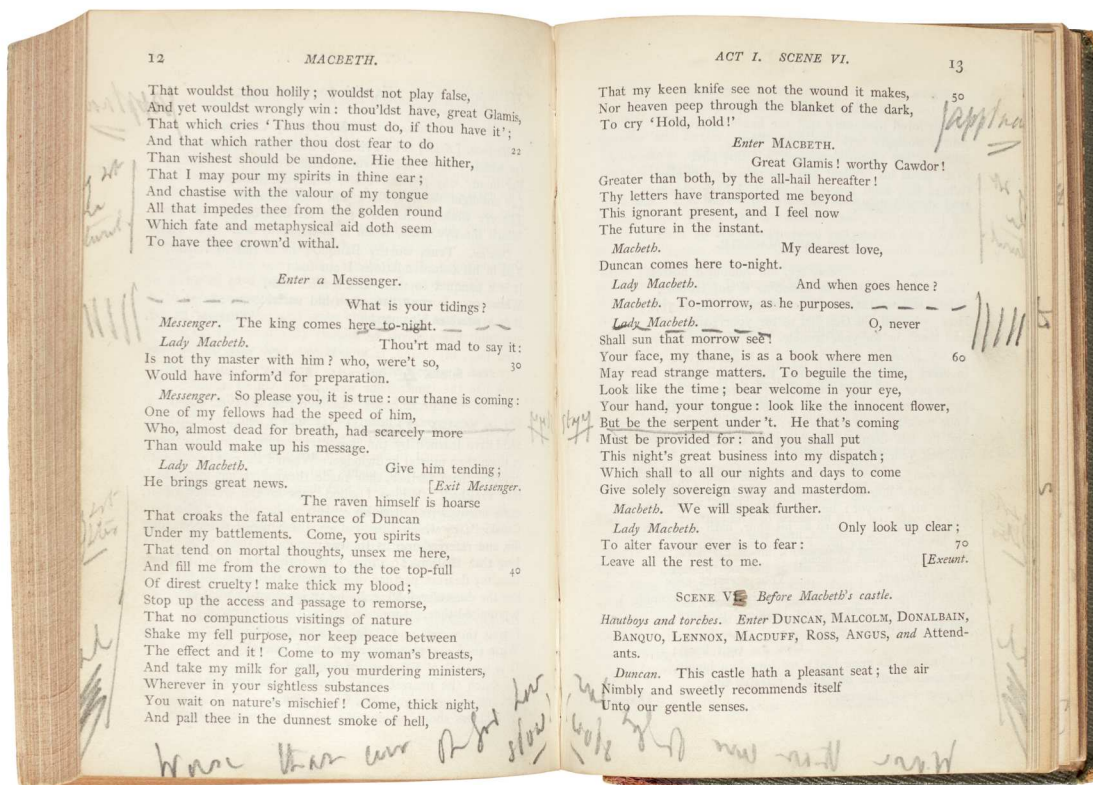 12
MACBETH.
That wouldst thou holily; wouldst not play false,
And yet wouldst wrongly win: thou'ldst have, great Glamis,
That which cries 'Thus thou must do, if thou have it';
And that which rather thou dost fear to do
22
Than wishest should be undone. Hie thee hither,
That I may pour my spirits in thine ear;
And chastise with the valour of my tongue
All that impedes thee from the golden round
Which fate and metaphysical aid doth seem
To have thee crown'd withal.
Enter a Messenger.
What is your tidings?
Messenger. The king comes here to-night.
Lady Macbeth. Thou'rt mad to say it:
Is not thy master with him? who, were't so, 30
Would have inform'd for preparation.
Messenger. So please you, it is true: our thane is coming:
One of my fellows had the speed of him,
Who, almost dead for breath, had scarcely more
Than would make up his message.
Lady Macbeth. Give him tending;
He brings great news. [Exit Messenger.
The raven himself is hoarse
That croaks the fatal entrance of Duncan
Under my battlements. Come, you spirits
That tend on mortal thoughts, unsex me here,
And fill me from the crown to the toe top-full 40
Of direst cruelty! make thick my blood;
Stop up the access and passage to remorse,
That no compunctious visitings of nature
Shake my fell purpose, nor keep peace between
The effect and it! Come to my woman's breasts,
And take my milk for gall, you murdering ministers,
Wherever in your sightless substances
You wait on nature's mischief! Come, thick night,
And pall thee in the dunnest smoke of hell,
slow
ACT I. SCENE VI.
13
That my keen knife see not the wound it makes, 50
Nor heaven peep through the blanket of the dark,
To cry 'Hold, hold!'
Enter MACBETH.
Great Glamis! worthy Cawdor!
Greater than both, by the all-hail hereafter!
Thy letters have transported me beyond
This ignorant present, and I feel now
The future in the instant.
Macbeth. My dearest love,
Duncan comes here to-night.
Lady Macbeth. And when goes hence?
Macbeth. To-morrow, as he purposes.
Lady Macbeth. O, never
Shall sun that morrow see!
Your face, my thane, is as a book where men 60
May read strange matters. To beguile the time,
Look like the time; bear welcome in your eye,
Your hand, your tongue: look like the innocent flower,
But be the serpent under 't. He that's coming
Must be provided for: and you shall put
This night's great business into my dispatch;
Which shall to all our nights and days to come
Give solely sovereign sway and masterdom.
Macbeth. We will speak further.
Lady Macbeth. Only look up clear;
To alter favour ever is to fear: 70
Leave all the rest to me. [Exeunt.
SCENE VI. Before Macbeth's castle.
Hautboys and torches. Enter DUNCAN, MALCOLM, DONALBAIN,
BANQUO, LENNOX, MACDUFF, ROSS, ANGUS, and Attend-
ants.
Duncan. This castle hath a pleasant seat; the air
Nimbly and sweetly recommends itself
Unto our gentle senses.